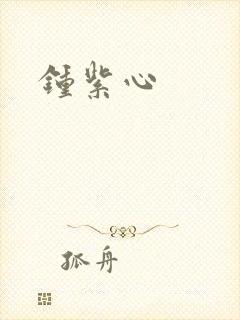 鍾紫心
孤舟